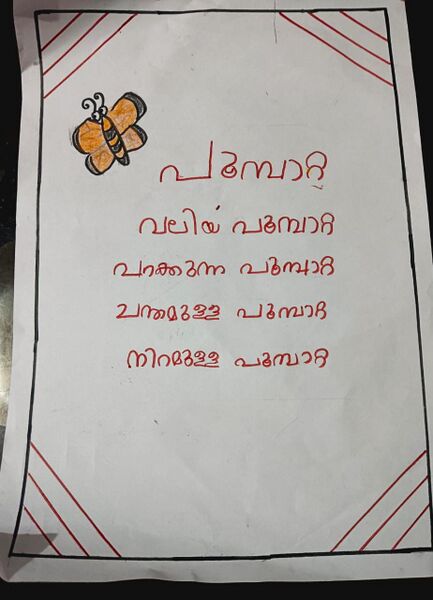 പൂമ്പാറ്റ
വലിയ പൂമ്പാറ്റ
പറക്കുന്ന പൂമ്പാറ്റ
ചന്തമുള്ള പൂമ്പാറ്റ
നിറമുള്ള പൂമ്പാറ്റ